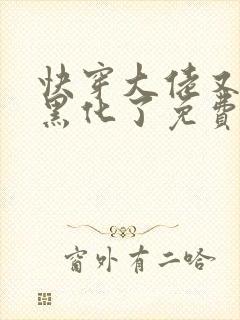 快穿大佬又
黑化了免費
窗外有二哈